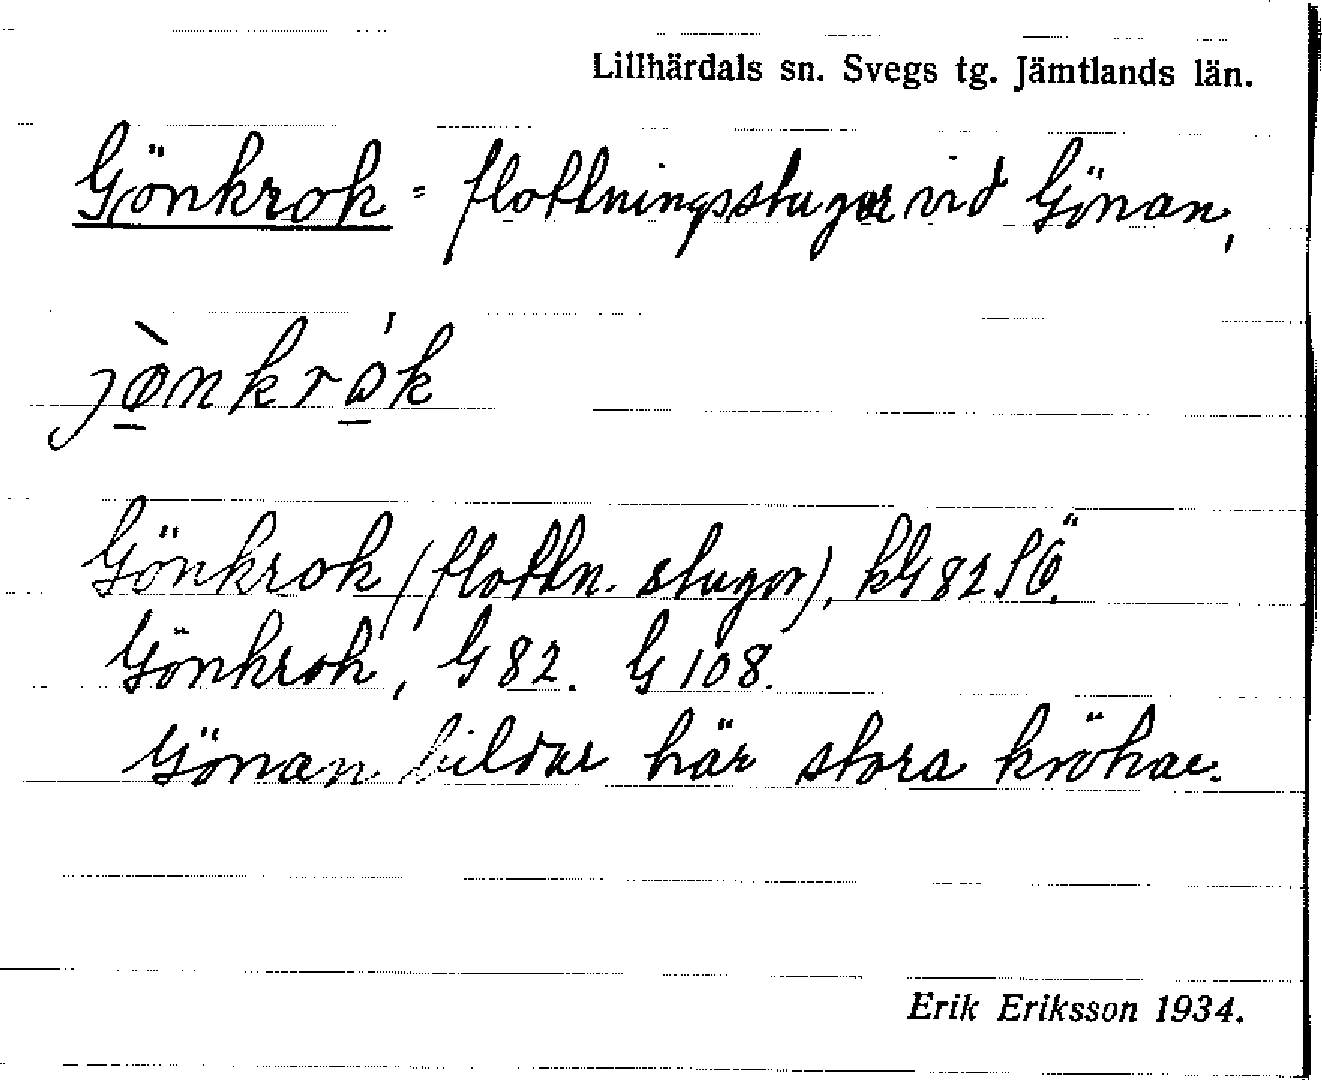 Lillhärdals sn. Svegs tg. Jämtlands län.
Gönkrok = flottningsstugor vid Gönan,
jø̀nkrók
Gönkrok (flottn. stugor), kG 82 SÖ.
Gönkrok, G 82. G 108.
Gönan bildar här stora krökar.
Erik Eriksson 1934.